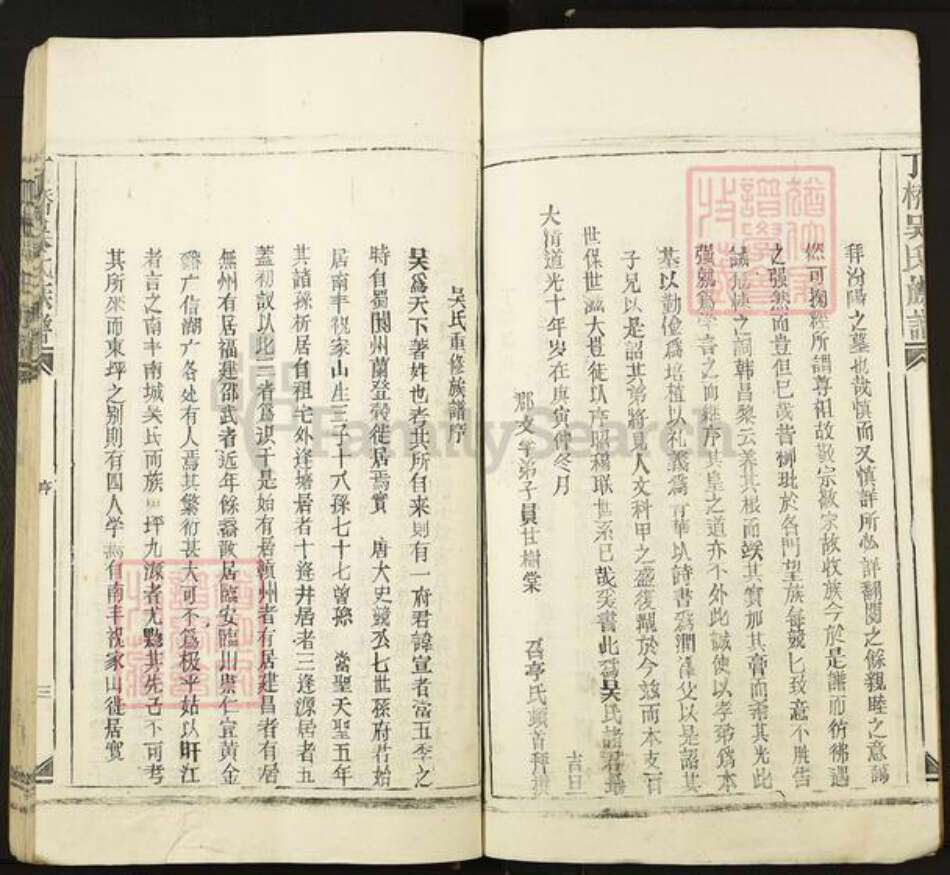 丁橋吳氏族譜
拜汾陽之墓也哉慎而又慎詳所必詳翻閱之餘親睦之意藹
然可掬經所謂尊祖故敬宗敬宗故收族今於是譜而彷彿遇
之强然而豈但已哉昔柳玭於名門望族每兢兢致意不勝告
誡昌黎云養其根而竢其實加其膏而希其光此
為學言之而繼序其皇之道亦不外此誠使以孝弟爲本
基以勤儉爲培植以礼義爲菁華以詩書爲潤澤父以是詔其
子兄以是詔其弟將見人文科甲之盛復覩於今茲而本支百
世保世滋大豈徒以序昭穆聯世系已哉爰書此爲吳氏諸君勗
大淸道光十年岁在庚寅仲冬月 吉日
郡文学弟子員甘樹棠 召亭氏頓首拜撰
吳氏重修族譜序
吳爲天下著姓也考其所自来則有一府君諱宣者當五季之
時自蜀閬州蘭登穀徙居焉實 唐大史兢公七世孫府君始
居南丰視家山生三子十八孫七十七曾孫 當聖天聖五年
其諸孫析居自祖宅外逢塘居者十逢井居者三逢源居者五
蓋初㕛以此三者爲识于是始有居贛州者有居建昌者有居
無州有居福建邵武者近年餘裔散居臨安臨川崇仁宜黄金
谿广信湖广各处有人焉其繁衍甚大可不爲极乎姑以盱江
者言之南丰南城吳氏而族 坪九源者尤夥其先己不可考
其所來而東坪之别則有四人学 自南丰視家山徙居實
序
三
FamilySearch